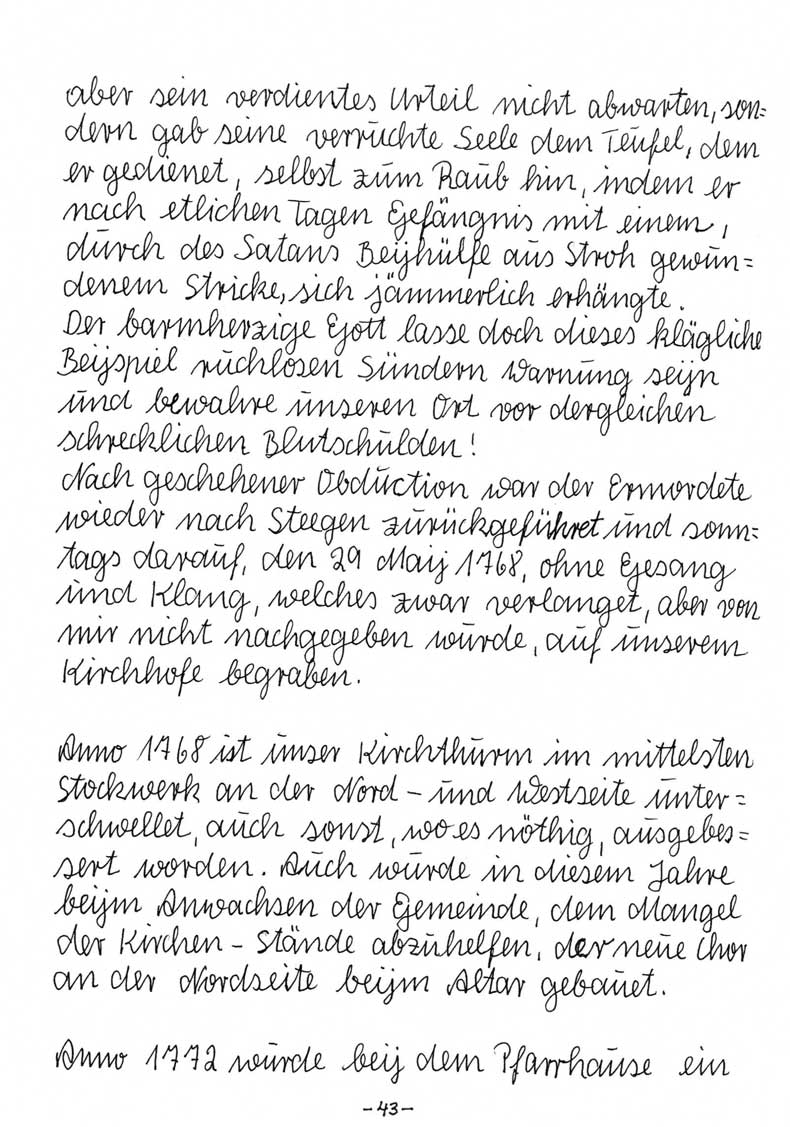 aber sein verdientes Urteil nicht abwarten, son=
dern gab seine verruchte Seele dem Teufel, dem
er gedienet, selbst zum Raub hin, indem er
nach etlichen Tagen Gefängnis mit einem,
durch des Satans Beijhülfe aus Stroh gewun=
denem Stricke, sich jämmerlich erhängte.
Der barmherzige Gott lasse doch dieses klägliche
Beijspiel ruchlosen Sündern Warnung seijn
und bewahre unseren Ort vor dergleichen
schrecklichen Blutschulden!
Nach geschehener Obduction war der Ermordete
wieder nach Steegen zurückgeführet und sonn=
tags darauf, den 29 Maij 1768, ohne Gesang
und Klang, welches zwar verlanget, aber von
mir nicht nachgegeben wurde, auf unserem
Kirchhofe begraben.
Anno 1768 ist unser Kirchthurm im mittelsten
Stockwerk an der Nord - und Westseite unter=
schwellet, auch sonst, wo es nöthig, ausgebes=
sert worden. Auch wurde in diesem Jahre
beijm Anwachsen der Gemeinde, dem Mangel
der Kirchen - Stände abzuhelfen, der neue Chor
an der Nordseite beijm Altar gebauet.
Anno 1772 wurde beij dem Pfarrhause ein
-43-